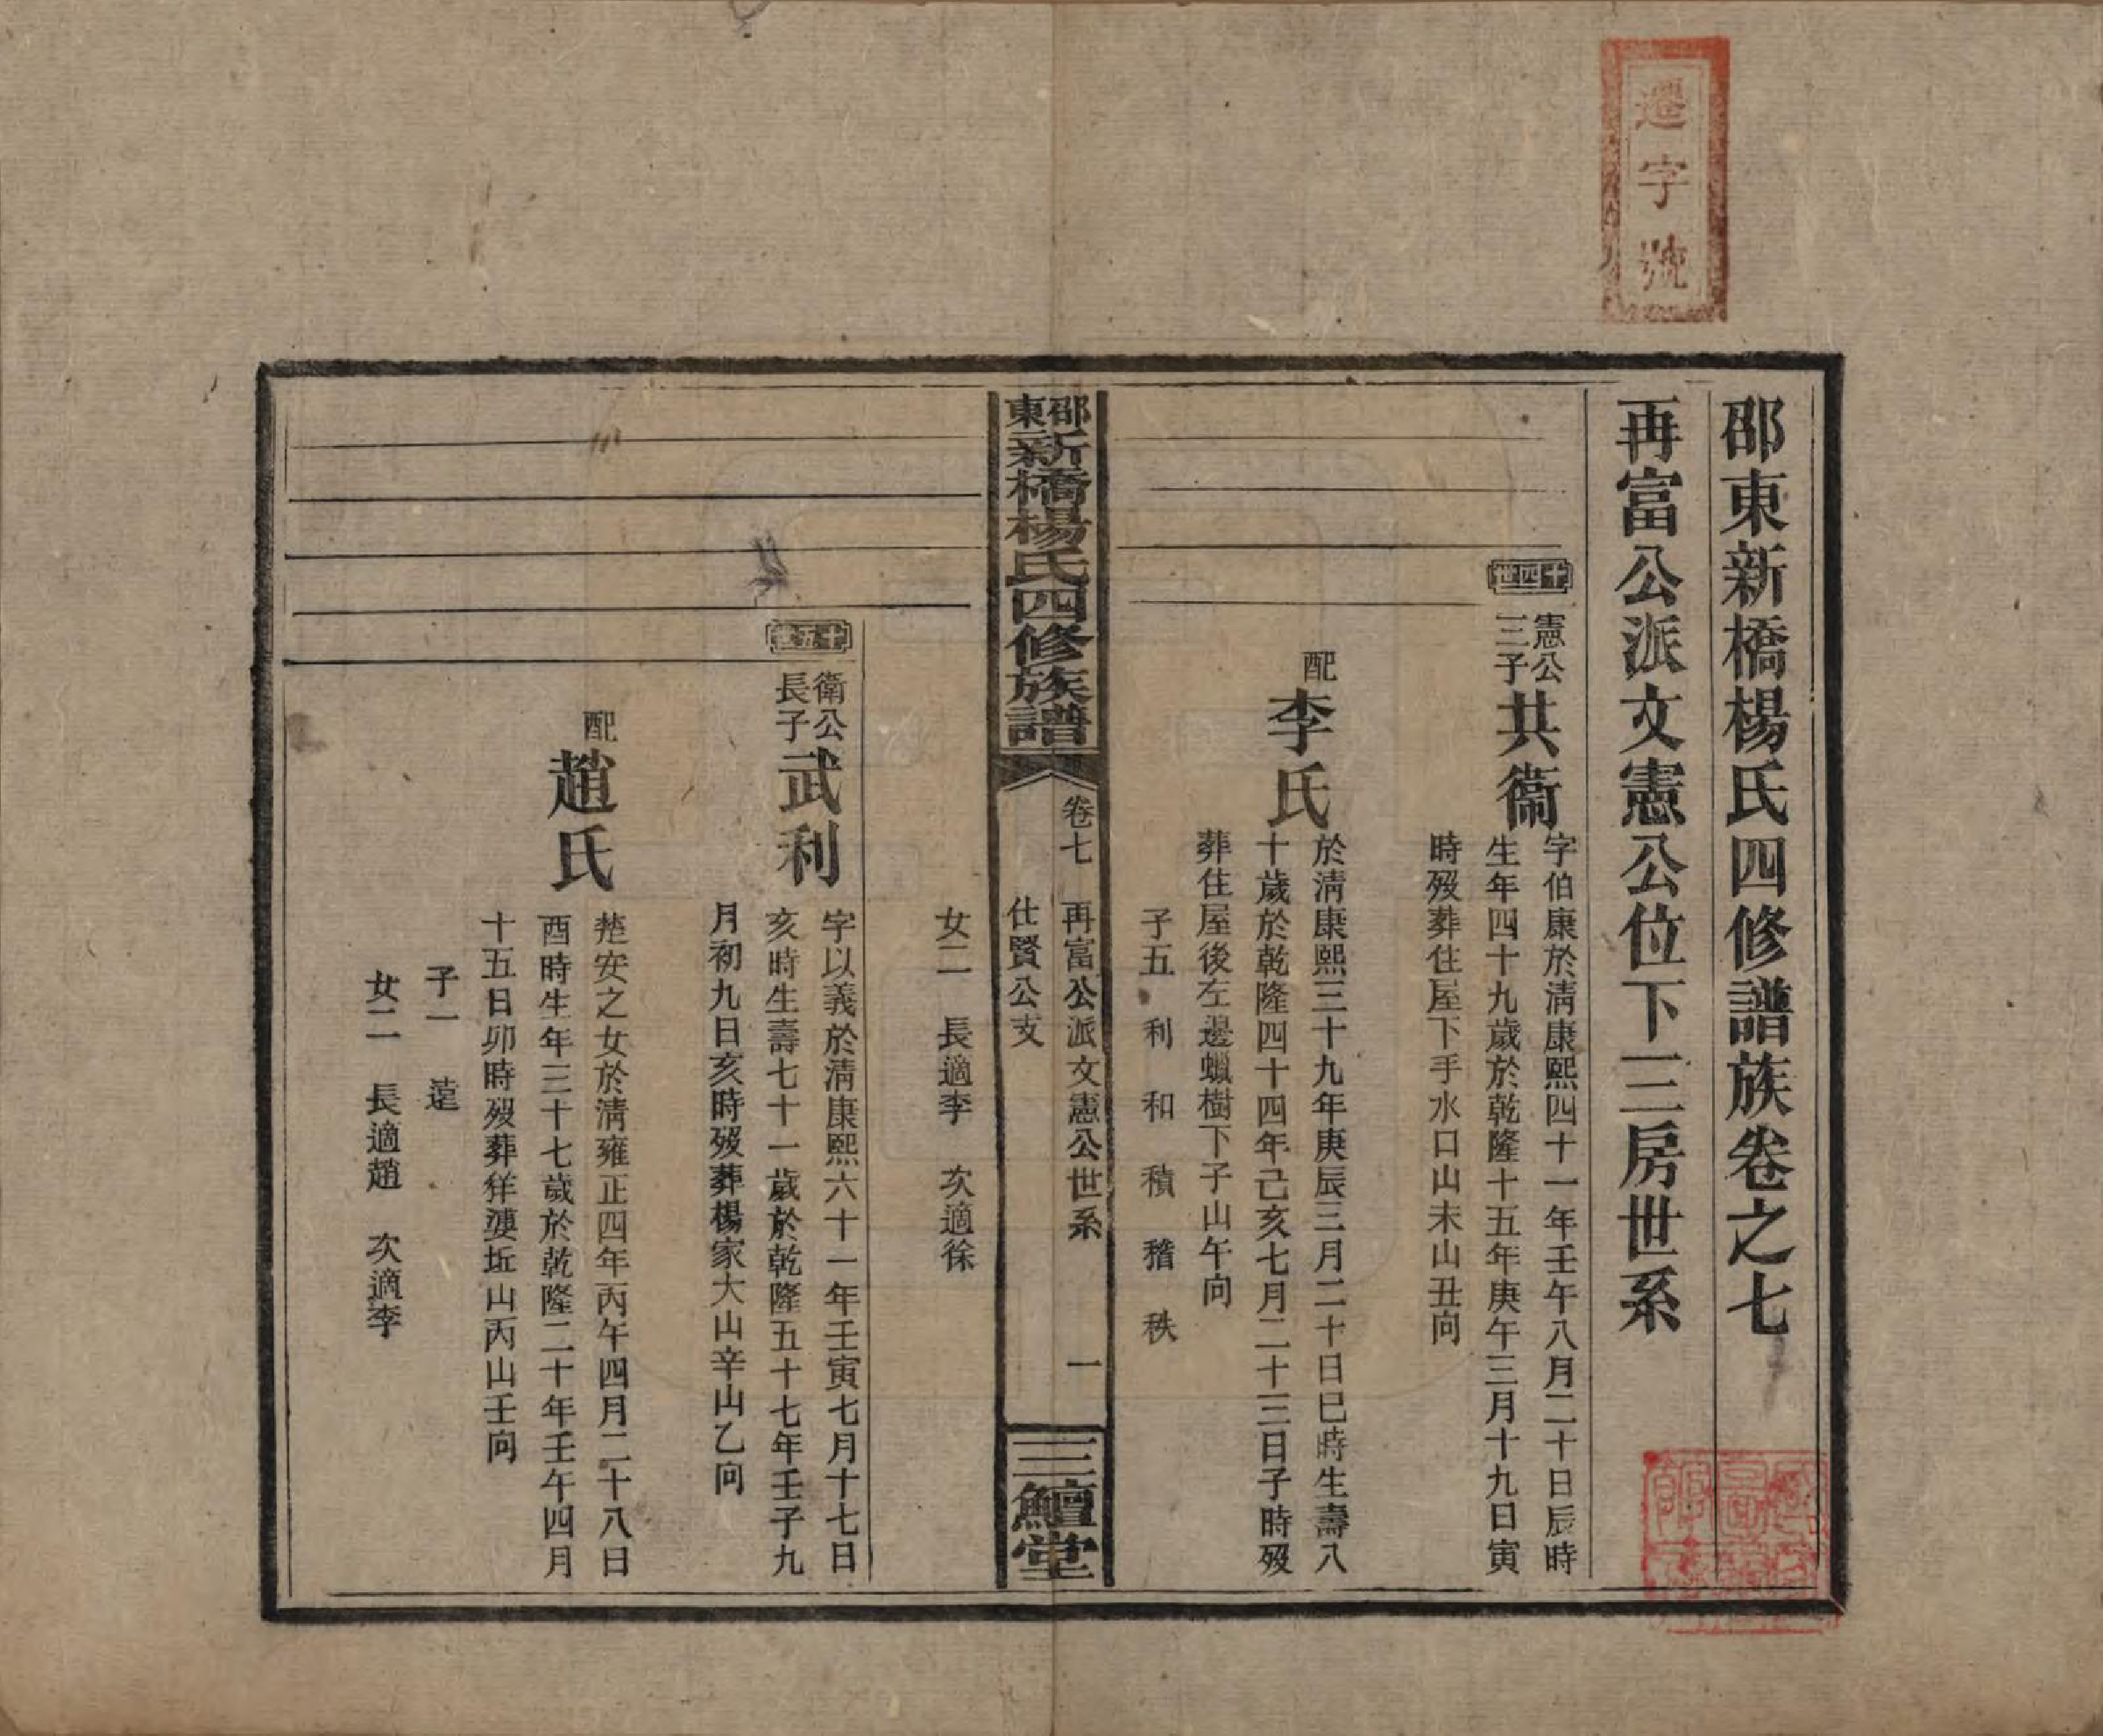 遷字號
邵東新橋楊氏四修譜族卷之七
再富公派文憲公位下三房世系
十四世
憲公
三子
共衞
字伯康於清康熙四十一年壬午八月二十日辰時
生年四十九歲於乾隆十五年庚午三月十九日寅
時殁葬住屋下手水口山未山丑向
配
李氏
於清康熙三十九年庚辰三月二十日巳時生壽八
十歲於乾隆四十四年己亥七月二十三日子時殁
葬住屋後左邊蠟樹下子山午向
子五 利 和 積 稽 秩
邵東
新橋楊氏四修族譜
卷七 再富公派文憲公世系 一
仕賢公支
三鱣堂
女二 長適李 次適徐
十五世
衛公
長子
武利
字以義於清康熙六十一年壬寅七月十七日
亥時生壽七十一歲於乾隆五十七年壬子九
月初九日亥時殁葬楊家大山辛山乙向
配
趙氏
楚安之女於清雍正四年丙午四月二十八日
酉時生年三十七歲於乾隆二十年壬午四月
十五日卯時殁葬山丙山壬向
子一 遠
女二 長適趙 次適李